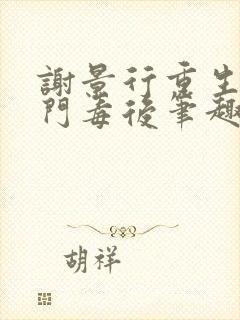 謝景行重生
門毒後筆趣
胡祥